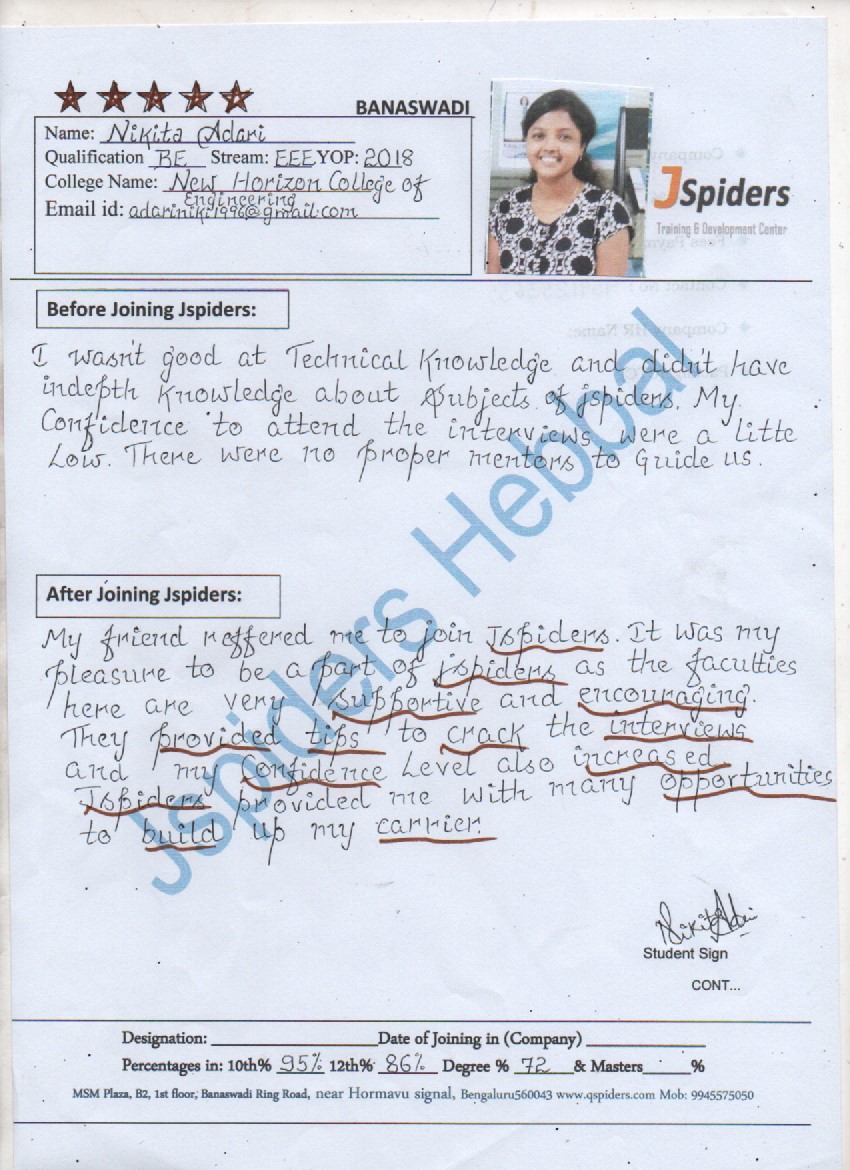 BANASWADI
Name: Nikita Adari
Qualification BE Stream: EEE YOP: 2018
College Name: New Horizon College of
Engineering
Email id: adariniki1996@gmail.com
JSpiders
Training & Development Center
Before Joining Jspiders:
I wasn't good at Technical Knowledge and didn't have
indepth Knowledge about subjects of jspiders. My
Confidence to attend the interviews were a litte
Low. There were no proper mentors to Guide us.
Jspiders Hebbal
After Joining Jspiders:
My friend reffered me to join Jspiders. It was my
pleasure to be a part of jspiders as the faculties
here are very supportive and encouraging.
They provided tips to crack the interviews
and my Confidence Level also increased.
Jspiders provided me with many opportunities
to build up my carrier.
Nikita Adari
Student Sign
CONT...
Designation: Date of Joining in (Company)
Percentages in: 10th% 95% 12th% 86% Degree % 72 & Masters %
MSM Plaza, B2, 1st floor, Banaswadi Ring Road, near Hormavu signal, Bengaluru560043 www.qspiders.com Mob: 9945575050